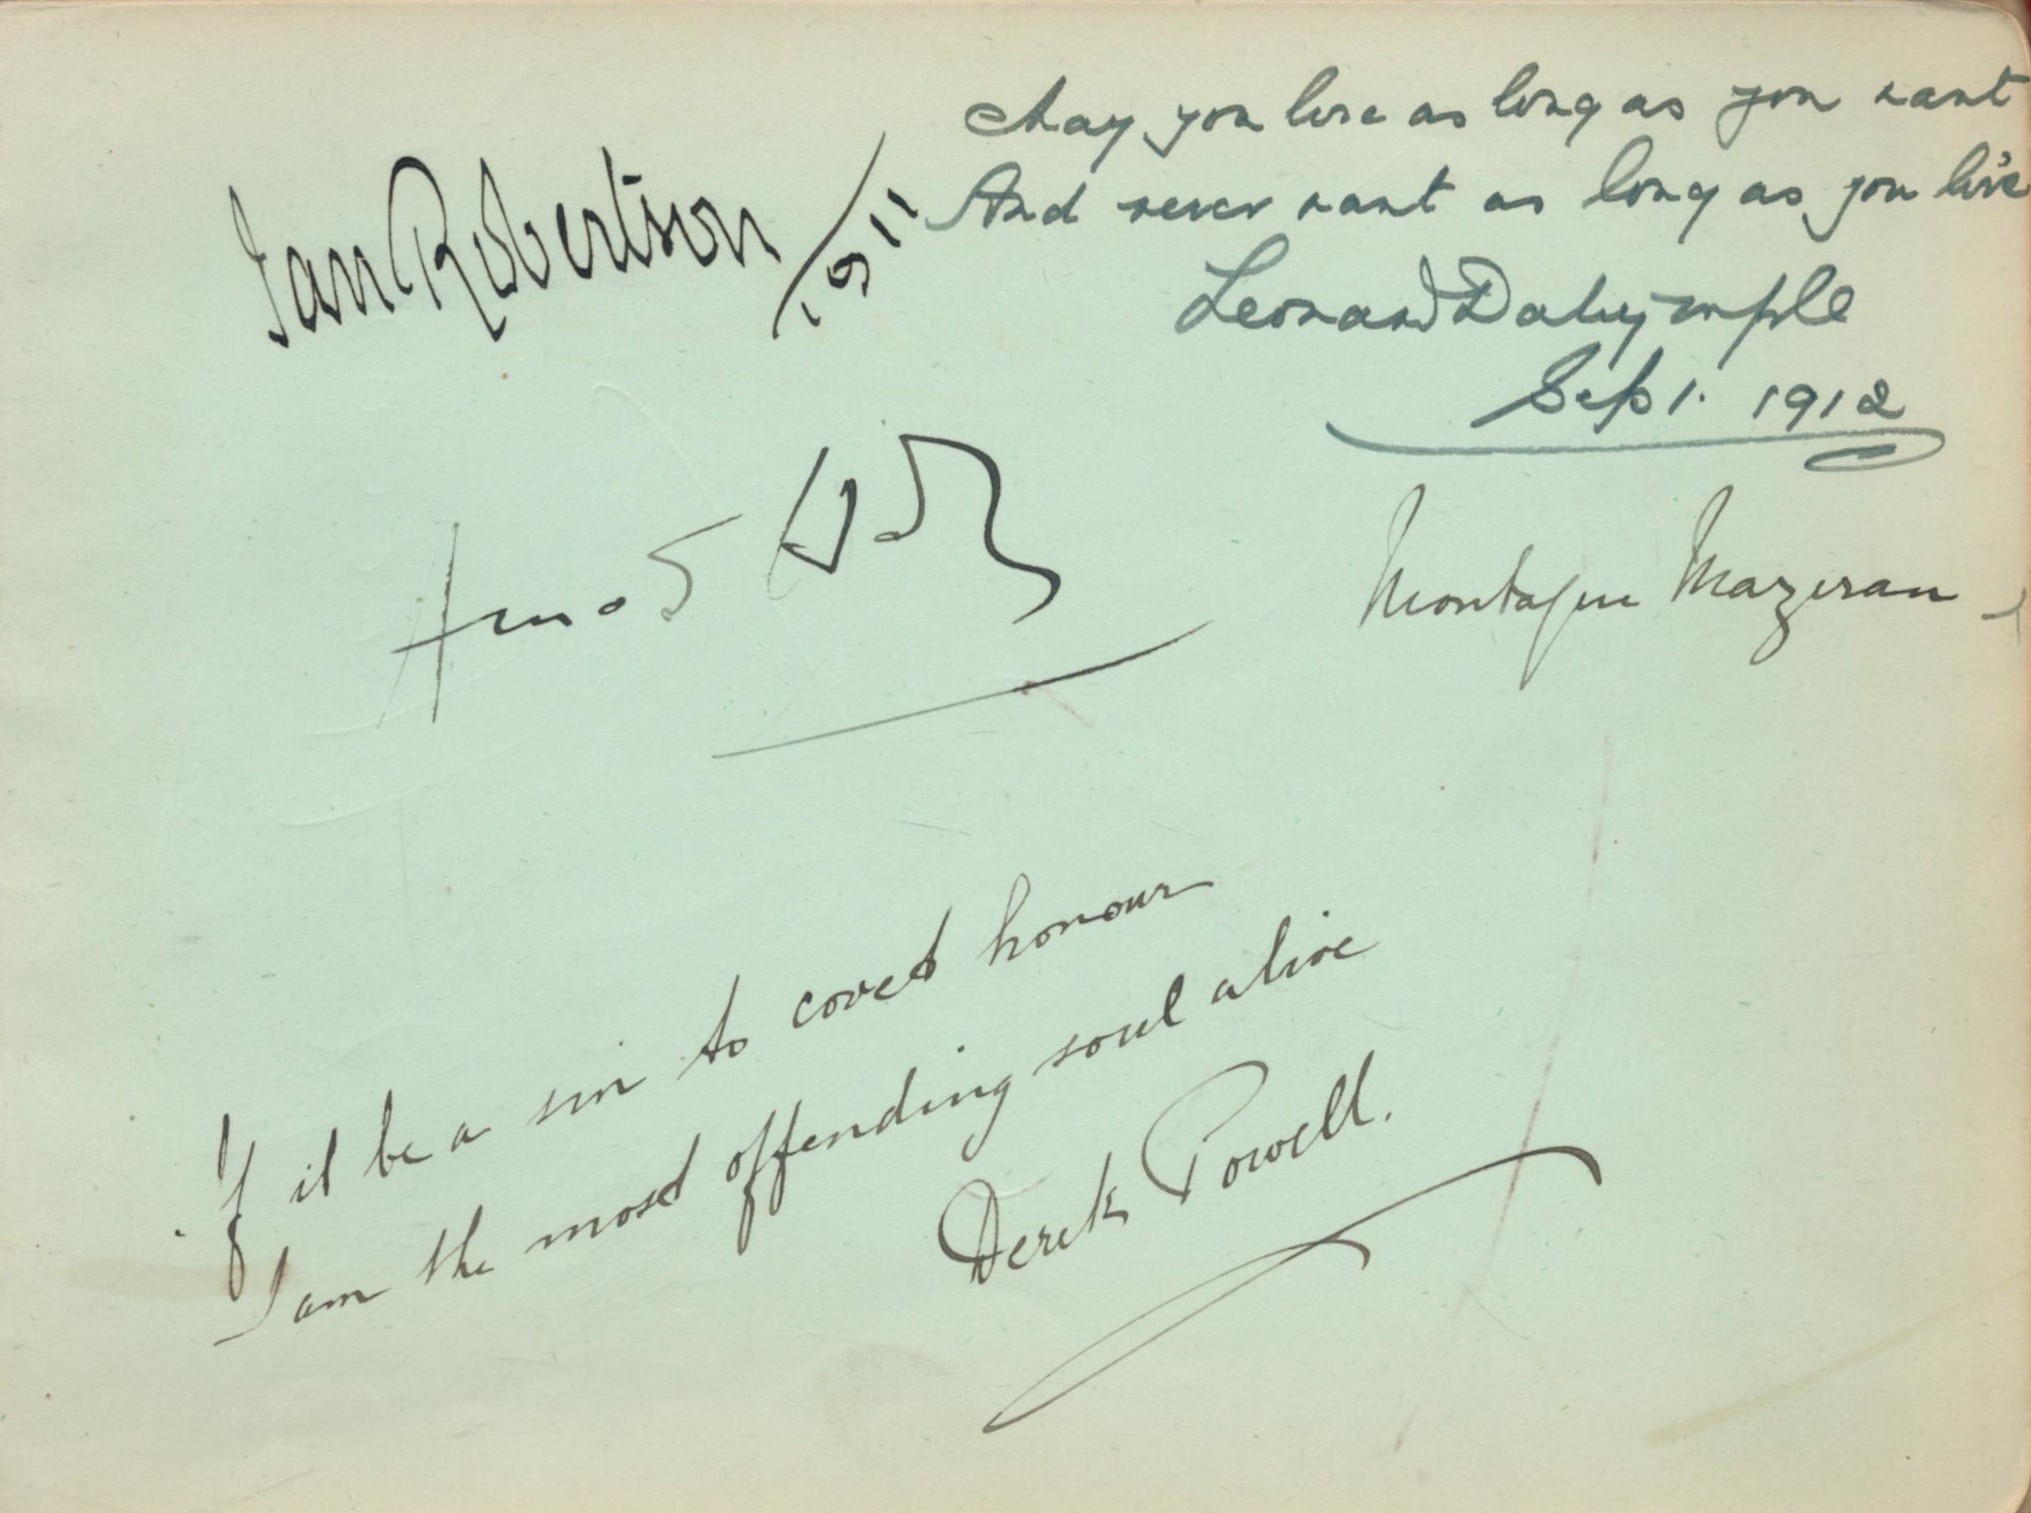 Ian Robertson
1911
May you live as long as you want
And never want as long as you live
Leonard Dalrymple
Sep 1. 1912
Montague
If it be a sin to covet honour
I am the most offending soul alive
Derek Powell.